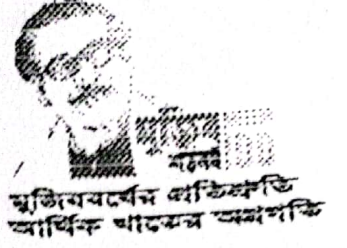 মুজিব
শতবর্ষ
মুজিববর্ষের প্রতিশ্রুতি
আর্থিক খাতের অগ্রগতি